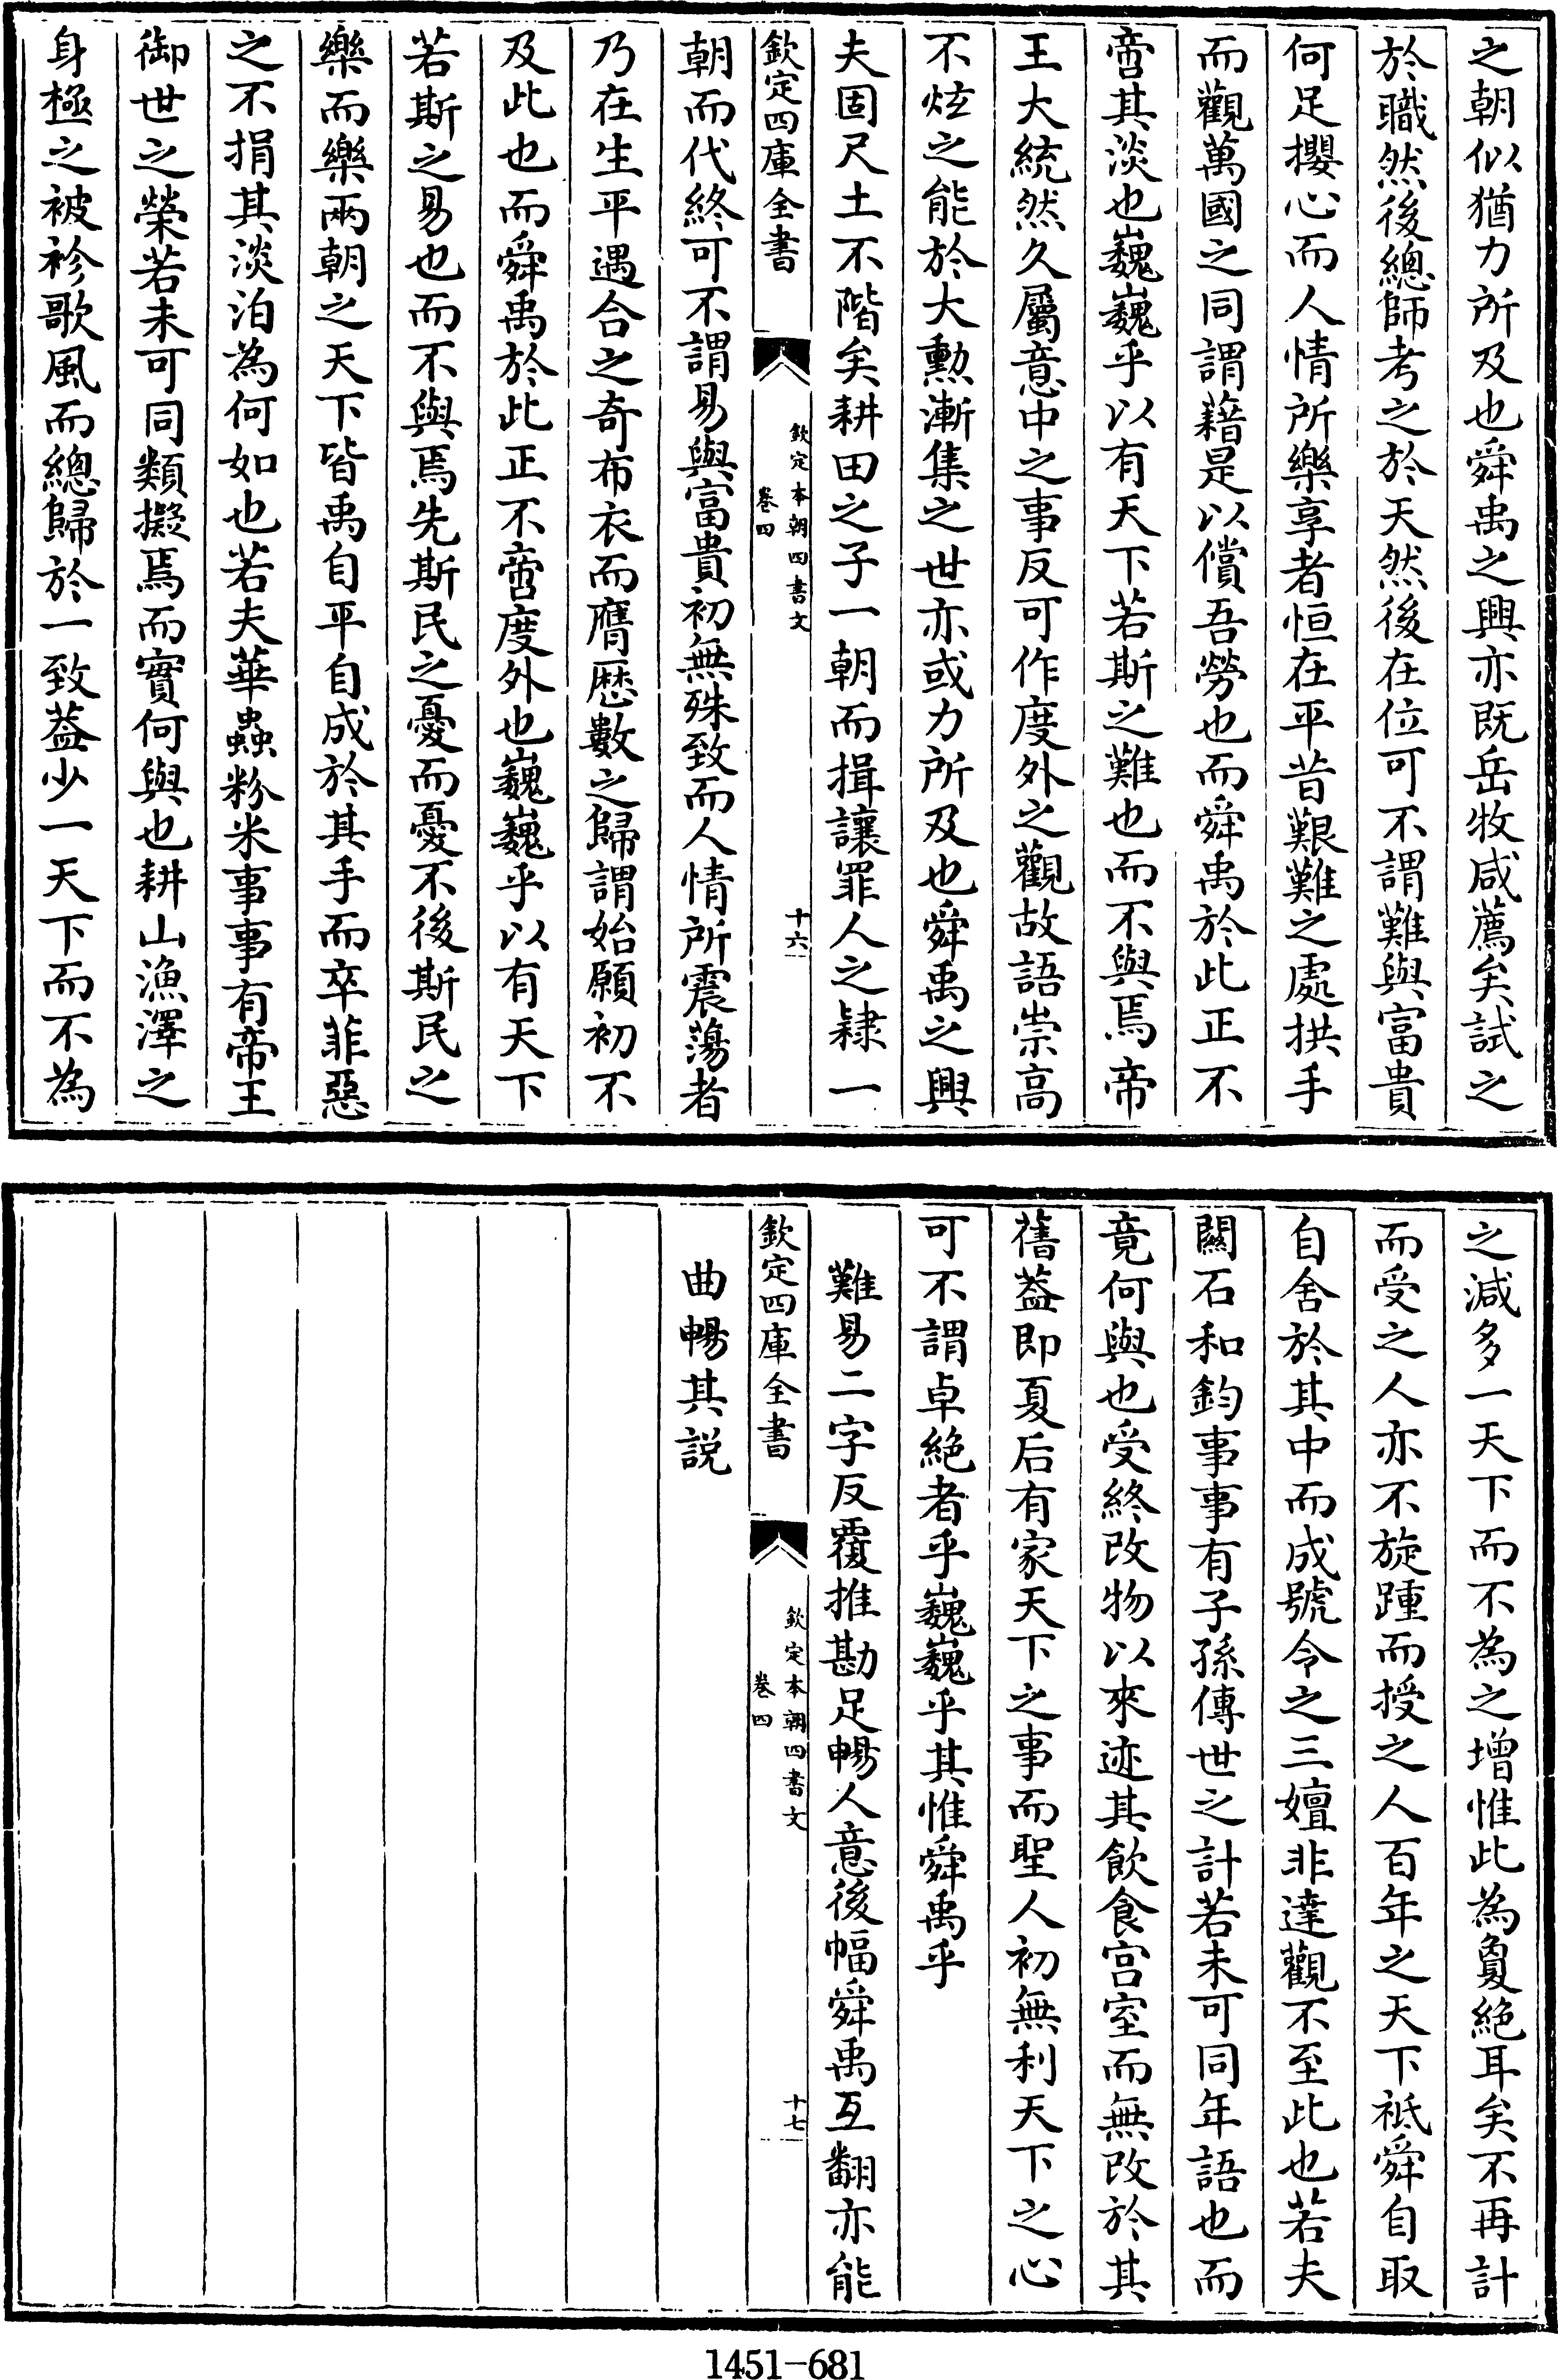 之朝似猶力所及也舜禹之興亦既岳牧咸薦矣試之
於職然後總師考之於天然後在位可不謂難與富貴
何足攖心而人情所樂享者恒在平昔艱難之處拱手
而觀萬國之同謂藉是以償吾勞也而舜禹於此正不
啻其淡也巍巍乎以有天下若斯之難也而不與焉帝
王大統然久屬意中之事反可作度外之觀故語崇高
不炫之能於大勲漸集之世亦或力所及也舜禹之興
夫固尺土不階矣耕田之子一朝而揖讓罪人之隸一
欽定四庫全書
欽定本朝四書文
卷四
十六
朝而代終可不謂易與富貴初無殊致而人情所震蕩者
乃在生平遇合之奇布衣而膺歴數之歸謂始願初不
及此也而舜禹於此正不啻度外也巍巍乎以有天下
若斯之易也而不與焉先斯民之憂而憂不後斯民之
樂而樂兩朝之天下皆禹自平自成於其手而卒菲惡
之不捐其淡泊為何如也若夫華蟲粉米事事有帝王
御世之榮若未可同類擬焉而實何與也耕山漁澤之
身極之被袗歌風而總歸於一致蓋少一天下而不為
之減多一天下而不為之增惟此為敻絶耳矣不再計
而受之人亦不旋踵而授之人百年之天下祗舜自取
自舍於其中而成號令之三嬗非達觀不至此也若夫
關石和鈞事事有子孫傳世之計若未可同年語也而
竟何與也受終改物以來迹其飲食宫室而無改於其
舊蓋即夏后有家天下之事而聖人初無利天下之心
可不謂卓絶者乎巍巍乎其惟舜禹乎
難易二字反覆推勘足暢人意後幅舜禹互翻亦能
欽定四庫全書
欽定本朝四書文
卷四
十七
曲暢其説
1451-681